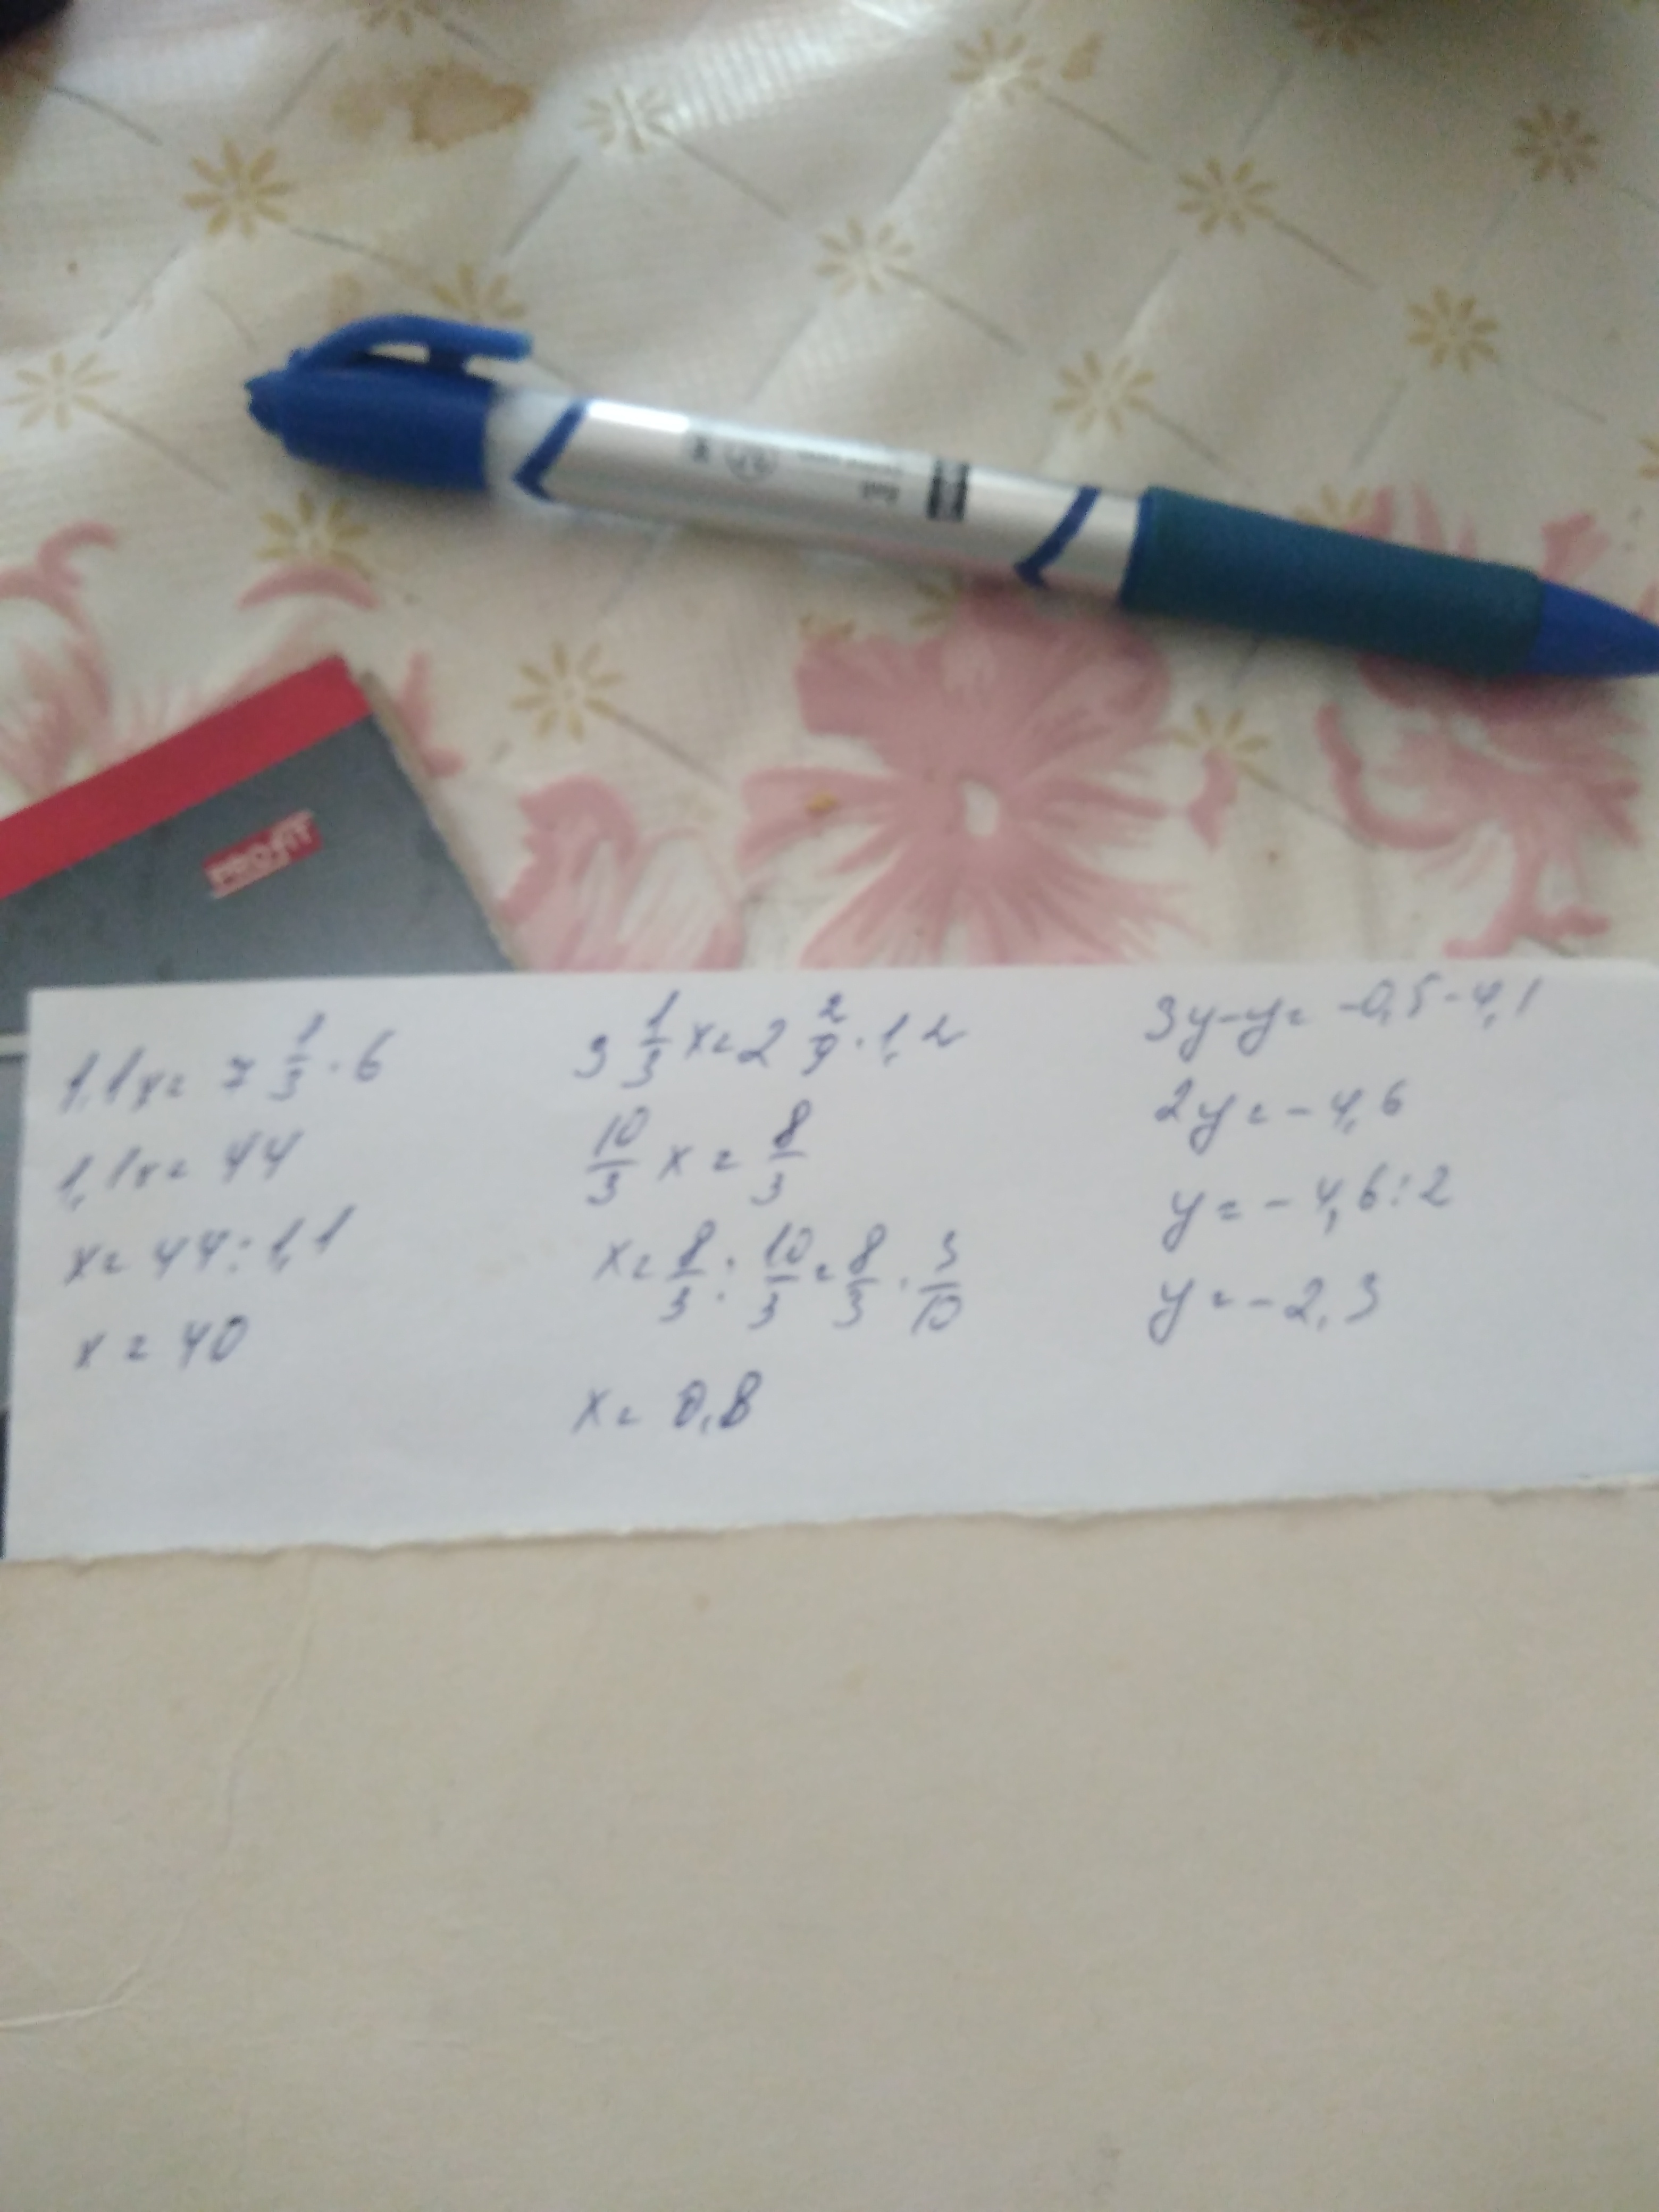 PROFIT
1,1x = 7 1/3 · 6
1,1x = 44
x = 44 : 1,1
x = 40
3 1/3 x = 2 2/9 · 1,2
10/3 x = 8/3
x = 8/3 : 10/3 = 8/3 · 3/10
x = 0,8
3y - y = -0,5 - 4,1
2y = -4,6
y = -4,6 : 2
y = -2,3